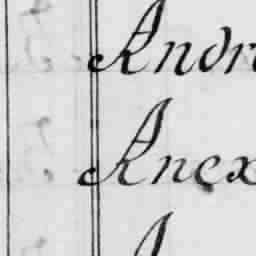 Andr
Anex
A